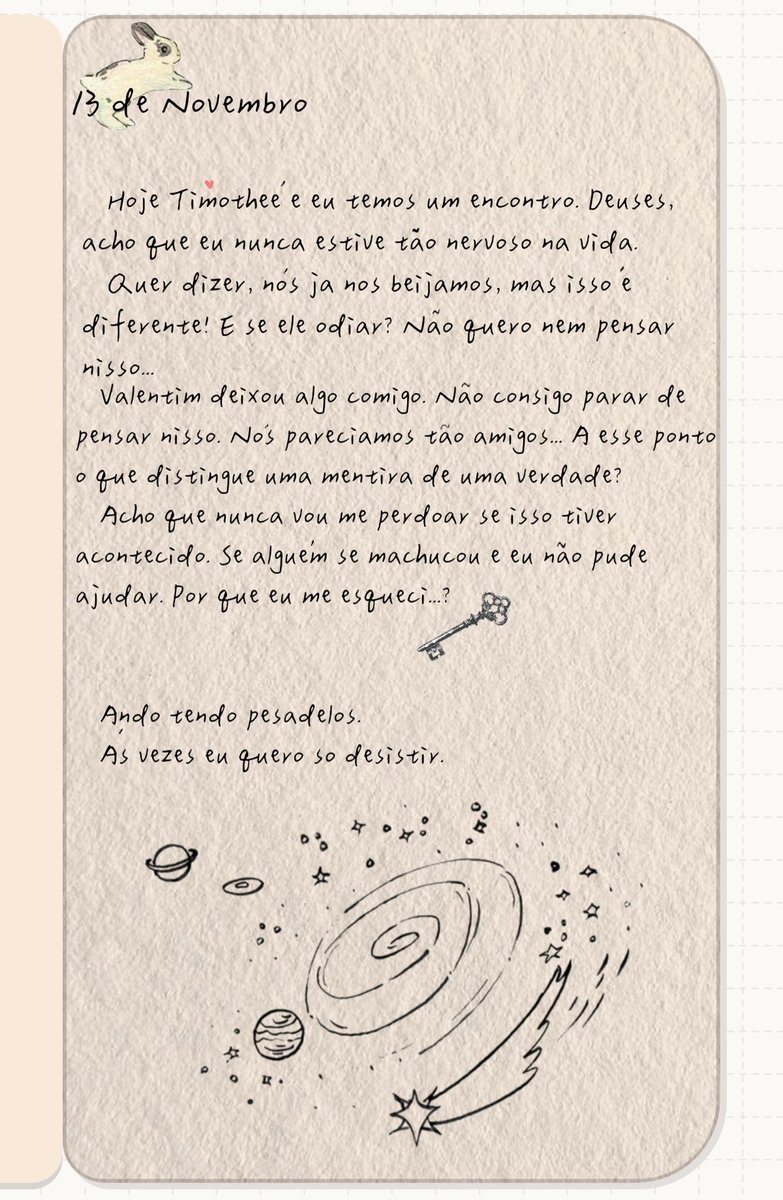 13 de Novembro
Hoje Timotheé e eu temos um encontro. Deuses,
acho que eu nunca estive tão nervoso na vida.
Quer dizer, nós ja nos beijamos, mas isso é
diferente! E se ele odiar? Não quero nem pensar
nisso...
Valentim deixou algo comigo. Não consigo parar de
pensar nisso. Nós pareciamos tão amigos... A esse ponto
o que distingue uma mentira de uma verdade?
Acho que nunca vou me perdoar se isso tiver
acontecido. Se alguém se machucou e eu não pude
ajudar. Por que eu me esqueci...?
Ando tendo pesadelos.
Ás vezes eu quero so desistir.